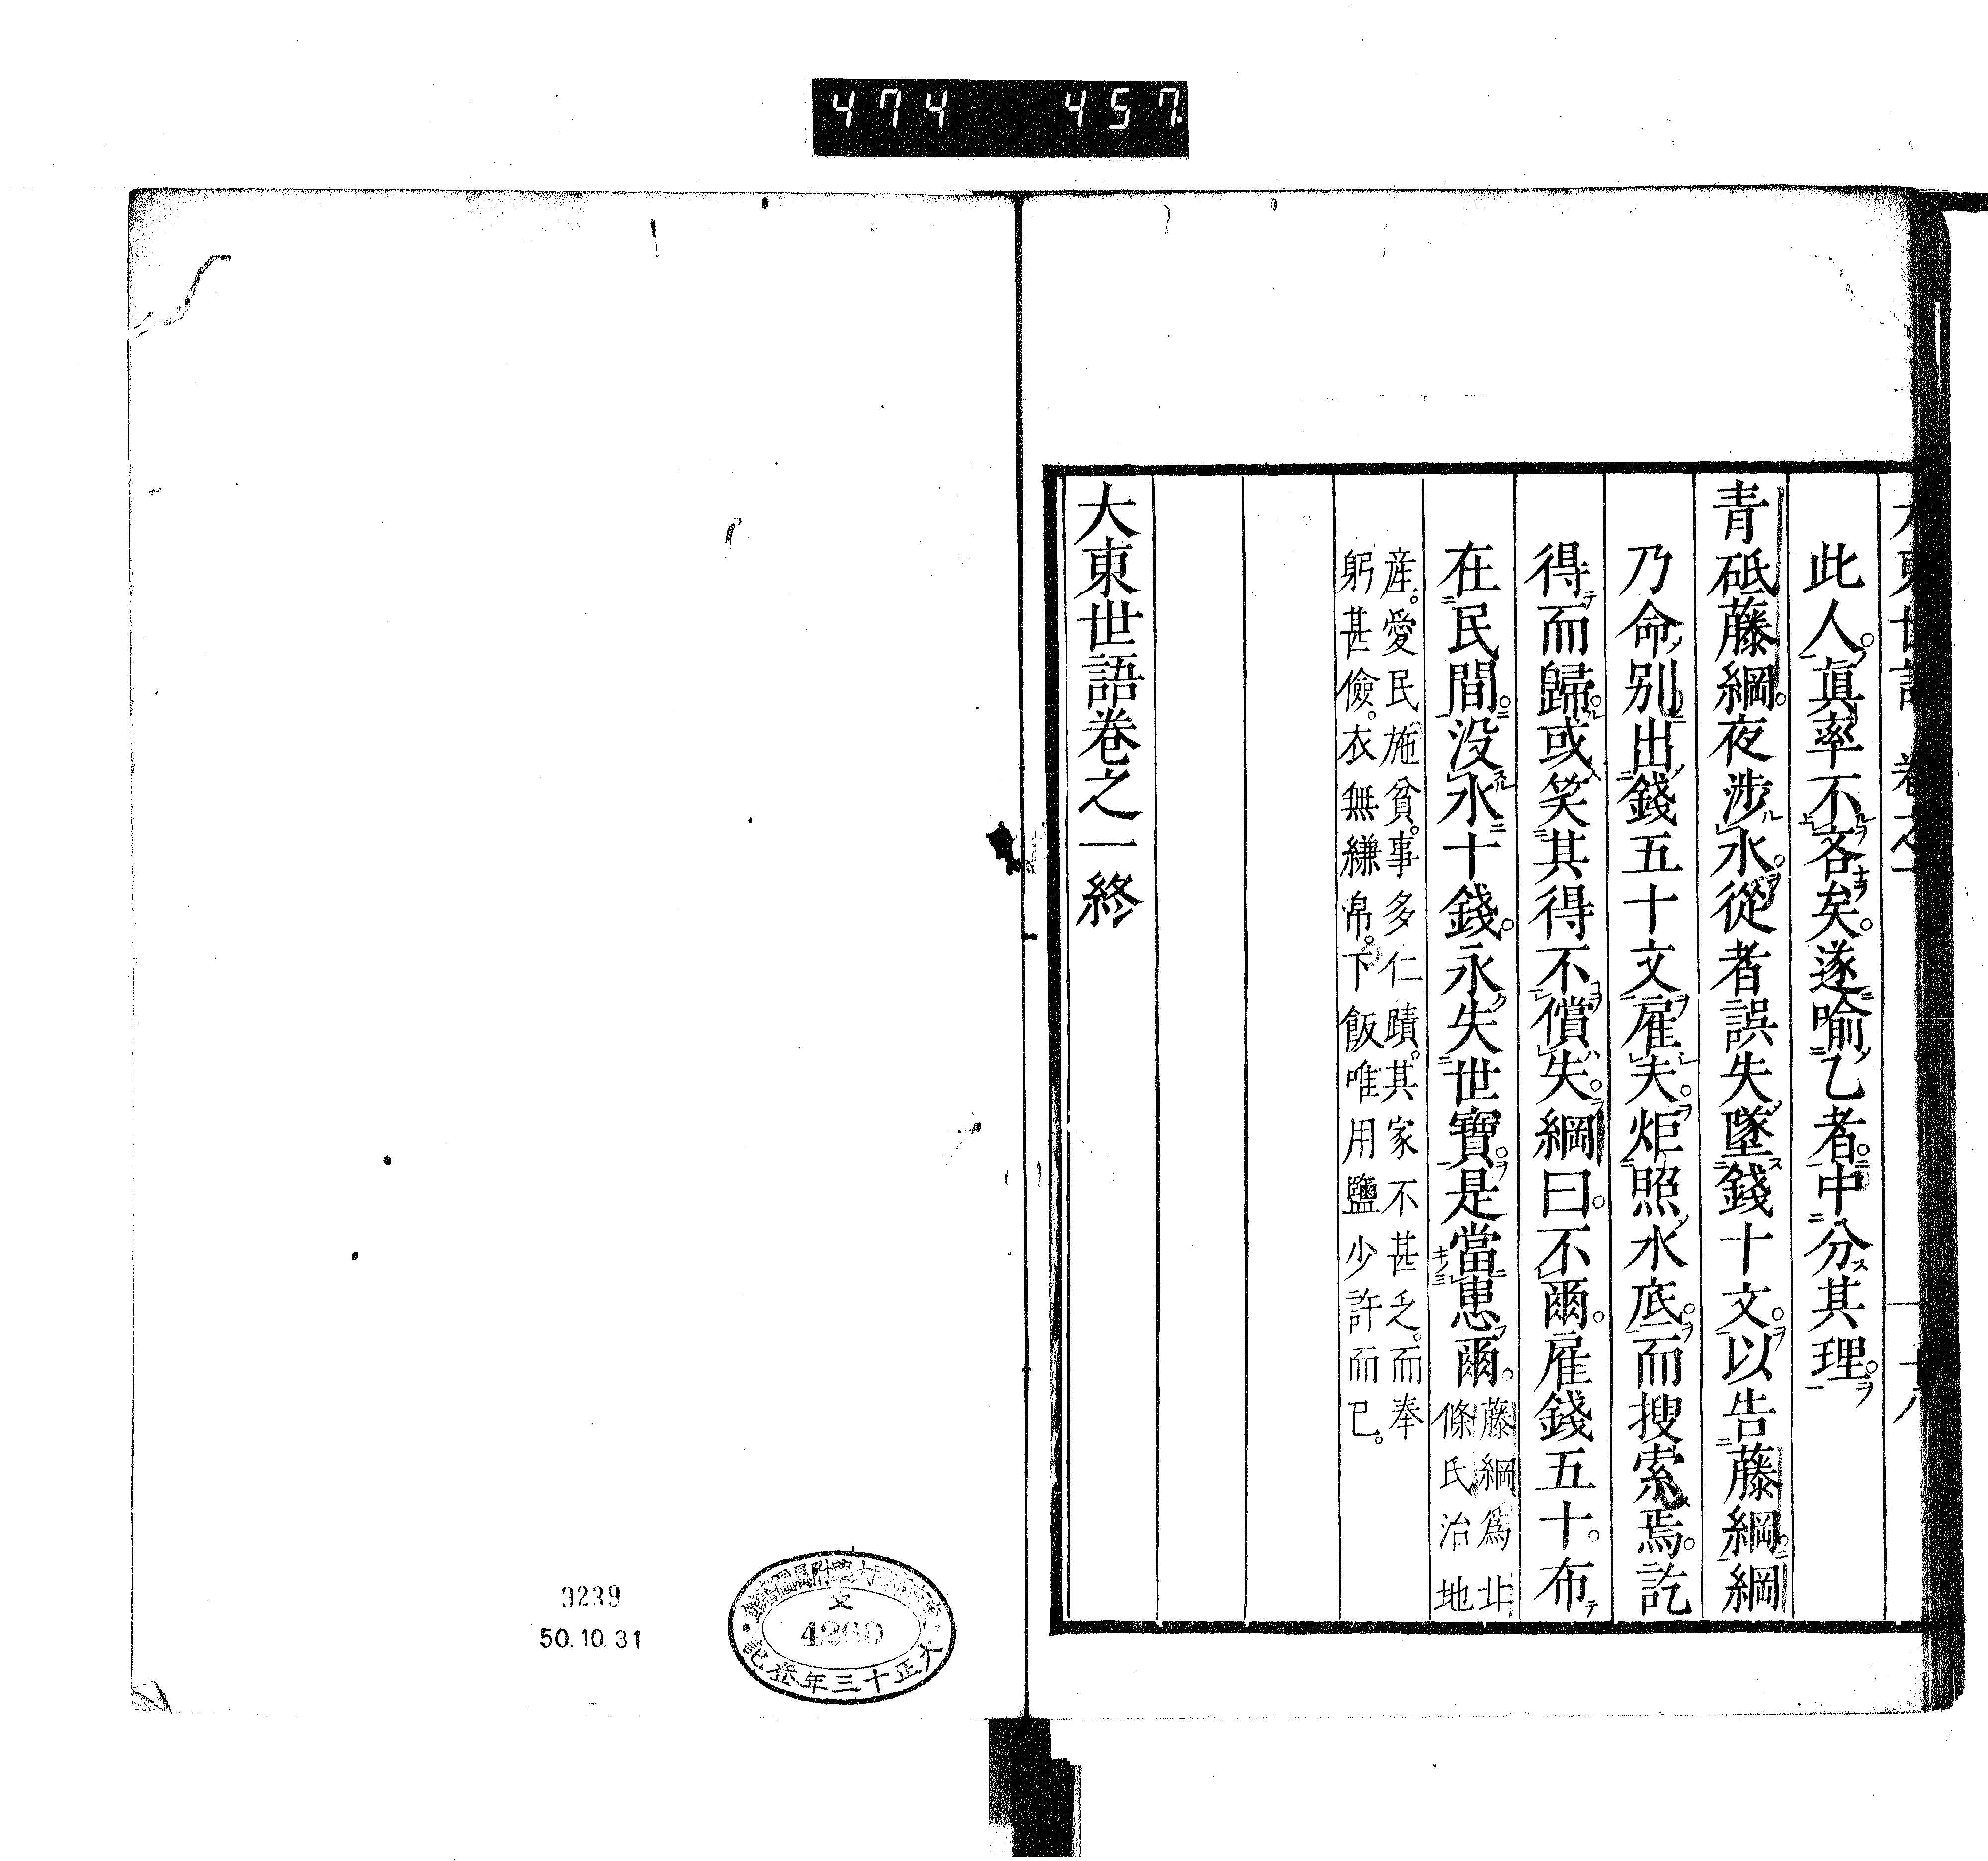 474 457
大東世語 卷之一 十八
此人。眞率不吝矣。遂喩乙者。中分其理。
青砥藤綱。夜渉水。從者誤失墜錢十文。以告藤綱。綱
乃命別出錢五十文雇夫。炬照水底。而搜索焉。訖
得而歸。或笑其得不償失。綱曰。不爾。雇錢五十。布
在民間。没水十錢。永失世寶。是當患爾。
藤綱爲北
條氏治地
産。愛民施貧。事多仁蹟。其家不甚乏。而奉
躬甚儉。衣無縑帛。下飯唯用鹽少許而已。
大東世語卷之一終
文
4260
大正十三年登記
9239
50.10.31